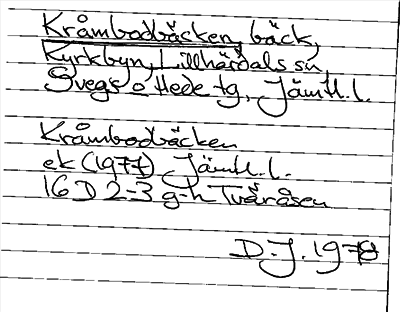 Kråmbodbäcken, bäck,
Kyrkbyn, Lillhärdals sn,
Svegs o Hede tg, Jämtl.l.
Kråmbodbäcken
ek (1977) Jämtl.l.
16 D 2-3 g-h Tvåråsen
D.J. 1978